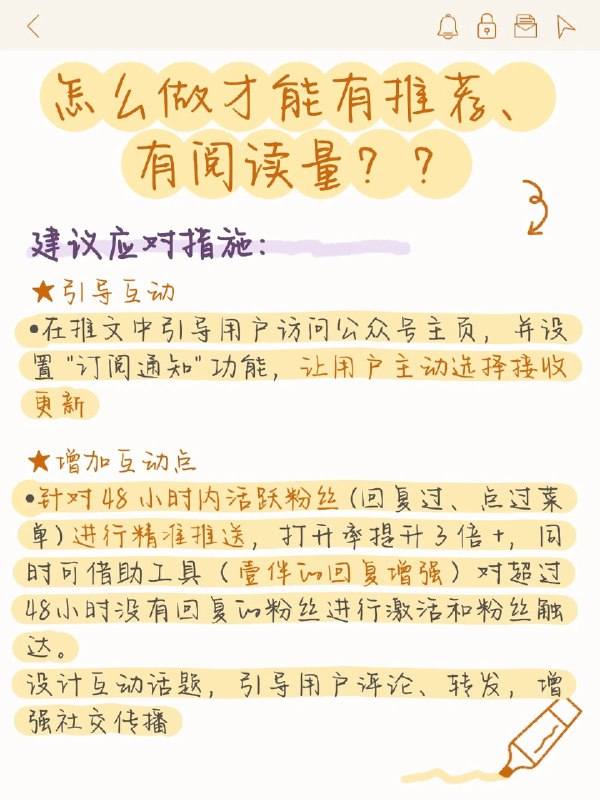 怎么做才能有推荐、
有阅读量？？
建议应对措施：
★引导互动
•在推文中引导用户访问公众号主页，并设
置"订阅通知"功能，让用户主动选择接收
更新
★增加互动点
•针对48小时内活跃粉丝(回复过、点过菜
单)进行精准推送，打开率提升3倍+，同
时可借助工具（壹伴的回复增强）对超过
48小时没有回复的粉丝进行激活和粉丝触
达。
设计互动话题，引导用户评论、转发，增
强社交传播